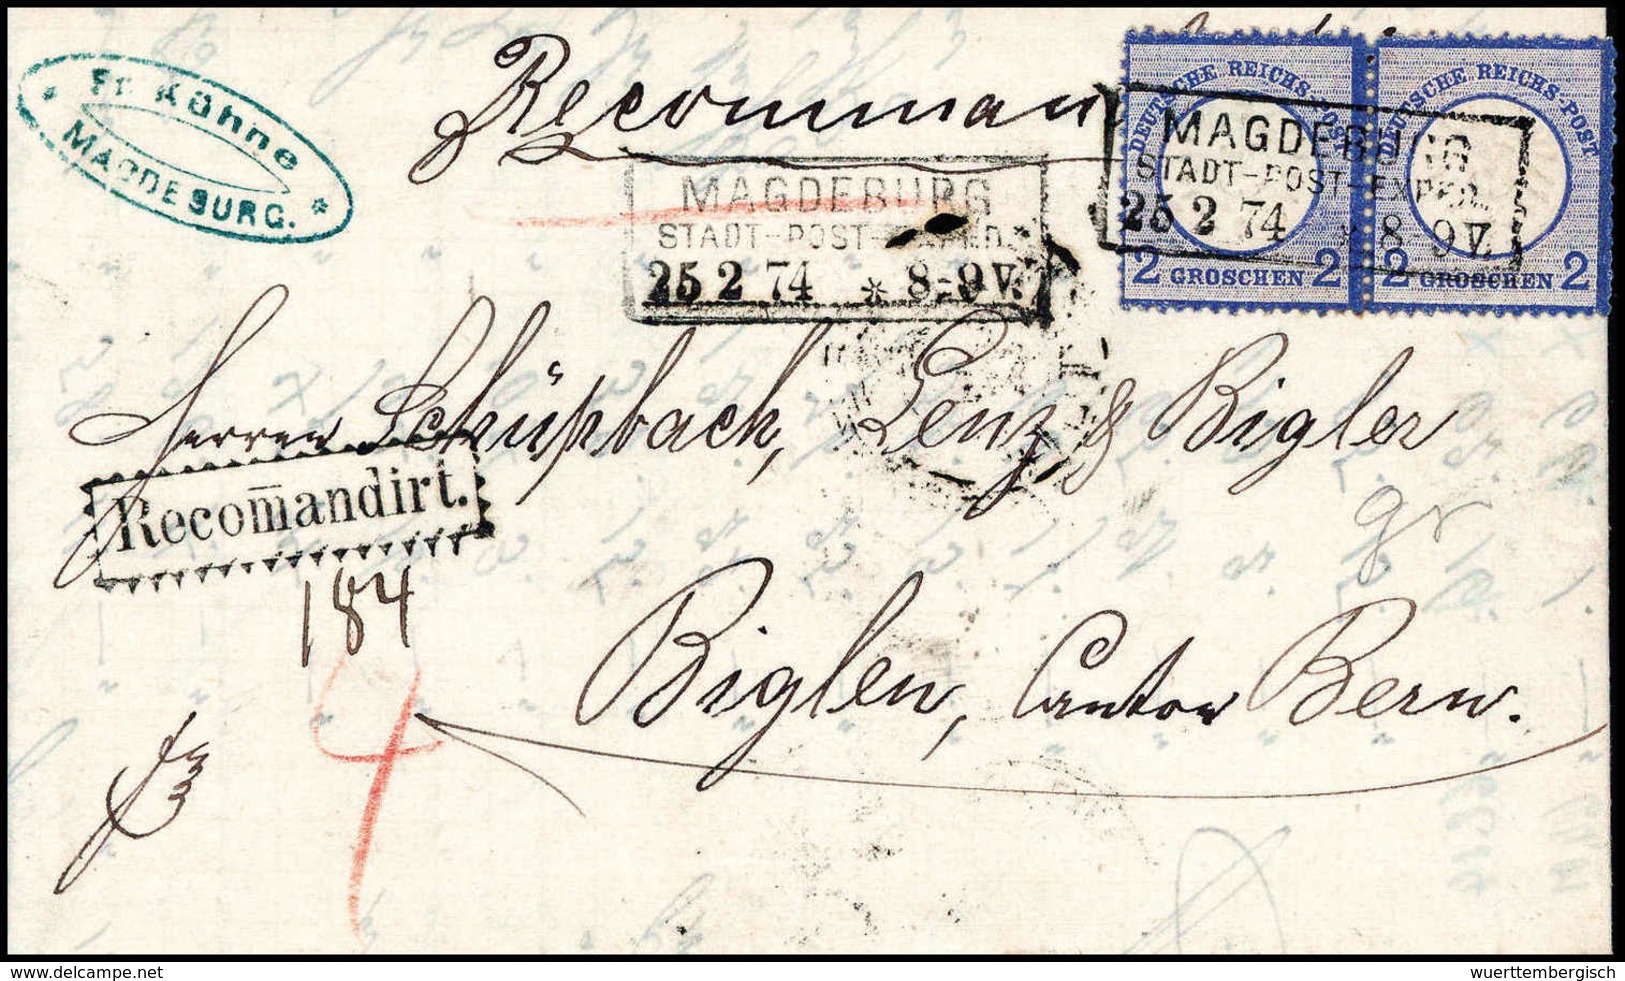 Fr. Kühne
* MAGDEBURG. *
Recomman
DEUTSCHE REICHS-POST
2 GROSCHEN 2
DEUTSCHE REICHS-POST
2 GROSCHEN 2
MAGDEBURG
STADT-POST-EXPED.
25 2 74 * 8-9V.
MAGDEBURG
STADT-POST-EXPED.
25 2 74 * 8-9V.
Herren Schüpbach, Lenz & Bigler
Recom̄andirt.
184
gr
Biglen, Canton Bern.
4
wuerttembergisch